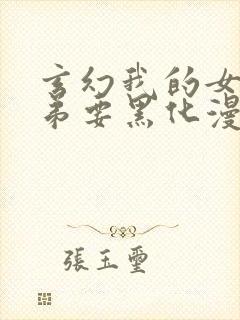 玄幻我的女
弟要黑化漫
張玉璽